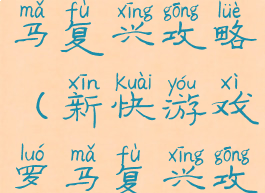 mǎ fù xīng gōng lüè
马复兴攻略
xīn kuài yóu xì
（新快游戏
luó mǎ fù xīng gōng
罗马复兴攻